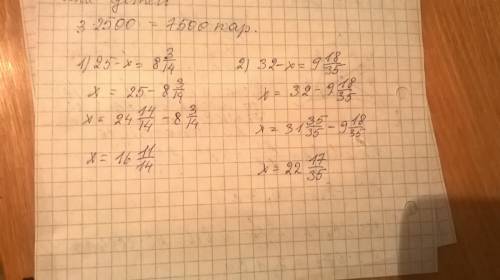 3·2500 = 7500 пар.
1) 25-x = 8 3/14
x = 25 - 8 3/14
x = 24 14/14 - 8 3/14
x = 16 11/14
2) 32-x = 9 18/35
x = 32 - 9 18/35
x = 31 35/35 - 9 18/35
x = 22 17/35